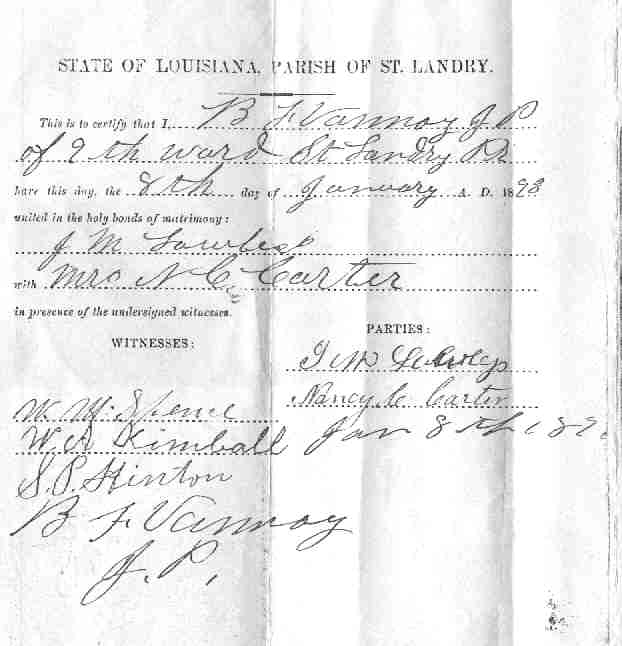 STATE OF LOUISIANA, PARISH OF ST. LANDRY.
This is to certify that I, B F Vannoy J P
of 9th ward St Landry Ph
have this day, the 8th day of January A. D. 1893
united in the holy bonds of matrimony:
J M
with Mrs N C Carter
in presence of the undersigned witnesses.
WITNESSES:
PARTIES:
J M
Nancy C Carter
W. M. Spence
W A Kimball
Jan 8th 189
S. P. Hinton
B F Vannoy
J. P.